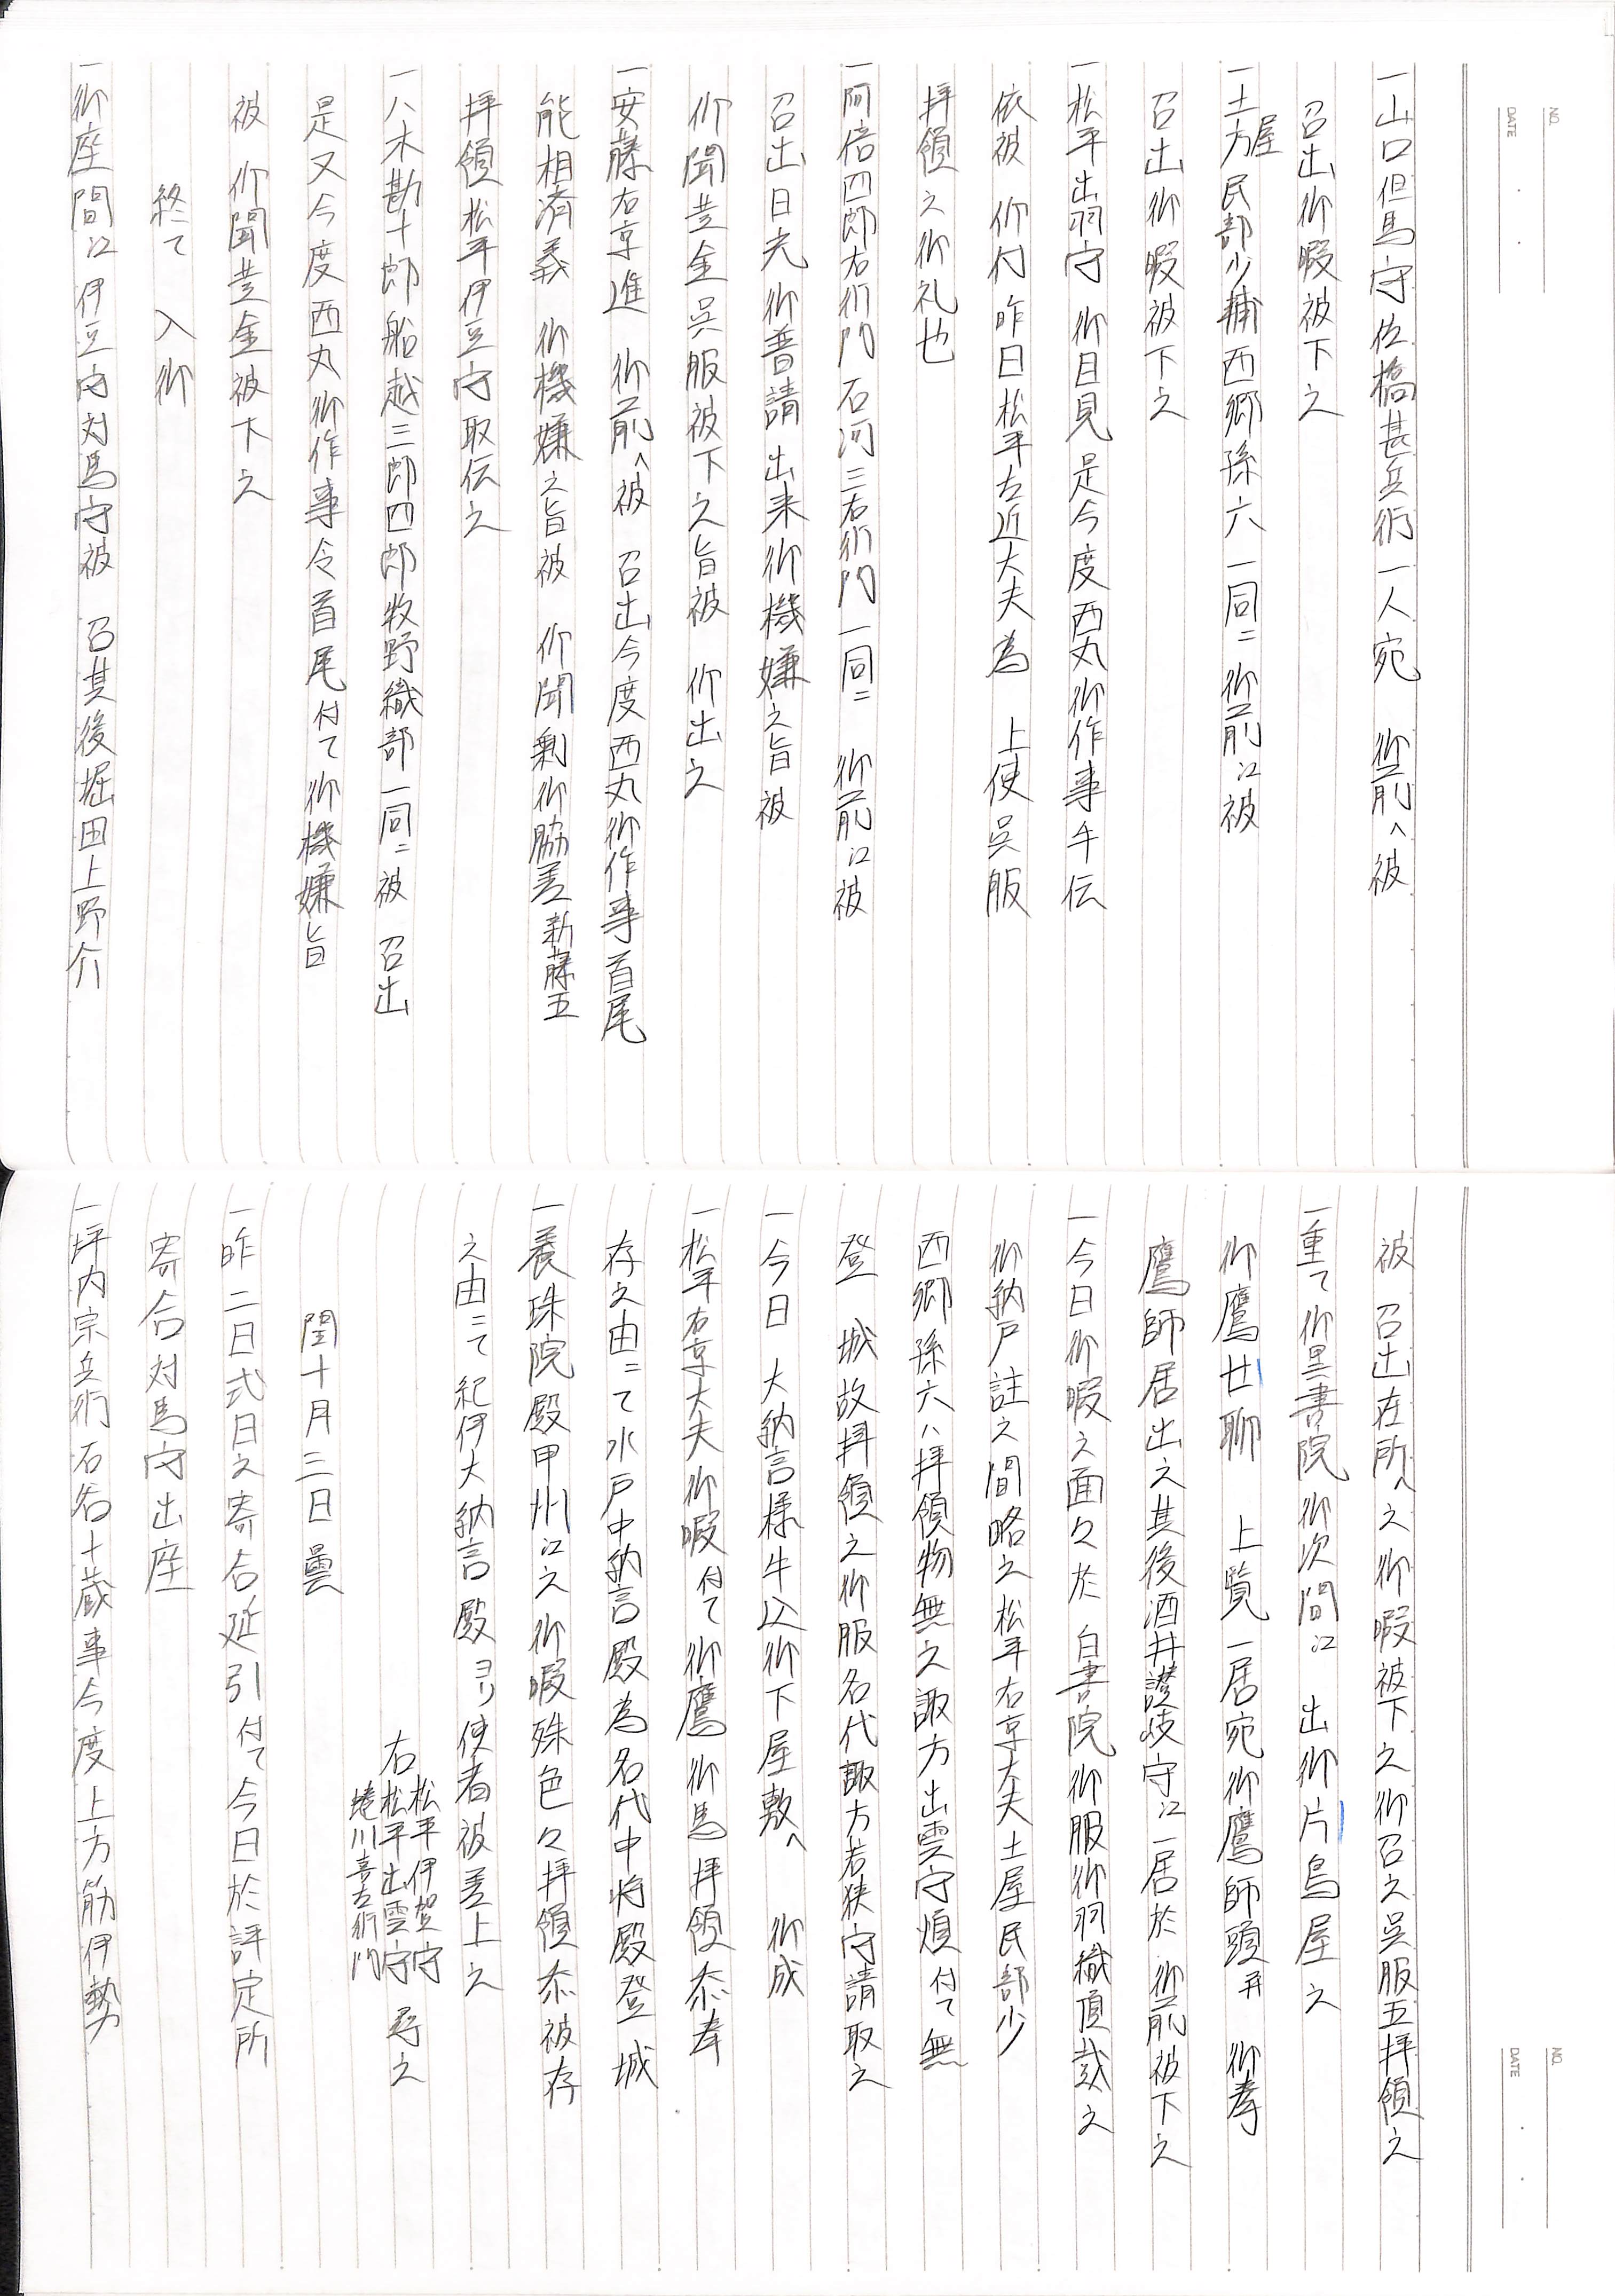 NO.
DATE
一山口但馬守佐橋甚兵衛一人宛　御前へ被
召出御暇被下之
一土屋民部少輔西郷孫六一同ニ　御前江被
召出御暇被下之
一松平出羽守　御目見是今度西丸御作事手伝
依被　仰付昨日松平右近大夫為　上使呉服
拝領之御礼也
一阿倍四郎右衛門石河三右衛門一同ニ　御前江被
召出日光御普請出来御機嫌之旨被
仰聞其金呉服被下之旨被　仰出之
一安藤右京進　御前へ被　召出今度西丸御作事首尾
能相済義　御機嫌之旨被　仰聞剰御脇差新藤五
拝領松平伊豆守取伝之
一八木勘十郎船越三郎四郎牧野織部一同ニ被　召出
是又今度西丸御作事令首尾付て御機嫌旨
被　仰聞其金被下之
終て　入御
一御座間江伊豆守対馬守被　召其後堀田上野介
NO.
DATE
被　召出在所へ之御暇被下之御召之呉服五拝領之
一重て御黒書院御次間江　出御片鳥屋之
御鷹廿聯　上覧一居宛御鷹師頭并　御拳
鷹師居出之其後酒井讃岐守江一居於　御前被下之
一今日御暇之面々於　白書院御服御羽織頂戴之
御納戸註之間略之松平右京大夫土屋民部少
西郷孫六ハ拝領物無之諏方出雲守煩付て無
登　城故拝領之御服名代諏方若狭守請取之
一今日　大納言様牛込御下屋敷へ　御成
一松平右京大夫御暇付て御鷹御馬拝領忝奉
存之由ニて水戸中納言殿為名代中将殿登　城
一養珠院殿甲州江之御暇殊色々拝領忝被存
之由ニて紀伊大納言殿ヨリ使者被差上之
松平伊賀守
右松平出雲守　尋之
蜷川喜左衛門
閏十月三日　曇
一昨二日式日之寄合延引付て今日於評定所
寄合対馬守出座
一坪内宗兵衛石谷十蔵事今度上方筋伊勢